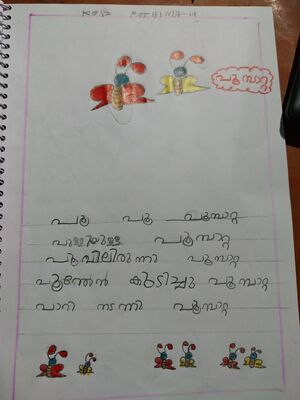 പൂമ്പാറ്റ
പൂ പൂ പൂമ്പാറ്റ
പുള്ളിയുള്ള പൂമ്പാറ്റ
പൂവിലിരുന്നു പൂമ്പാറ്റ
പൂന്തേൻ കുടിച്ചു പൂമ്പാറ്റ
പാറി നടന്നു പൂമ്പാറ്റ